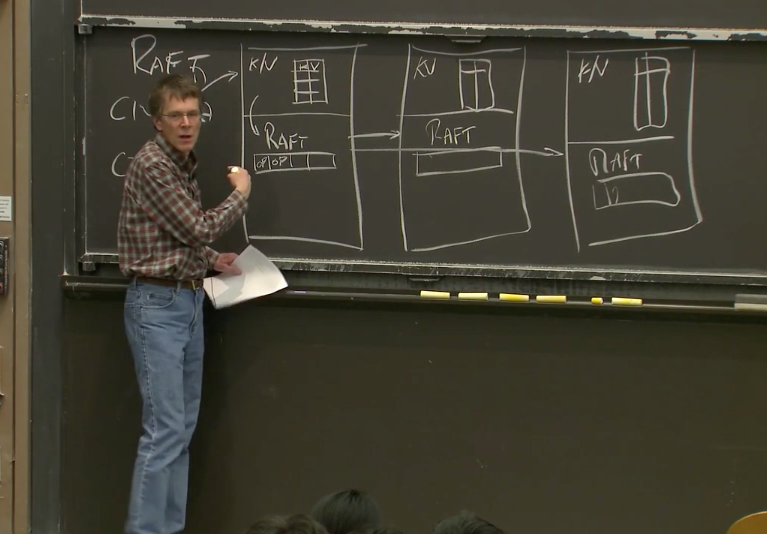 RAFT
KV
RAFT
OP OP
KV
RAFT
KV
RAFT